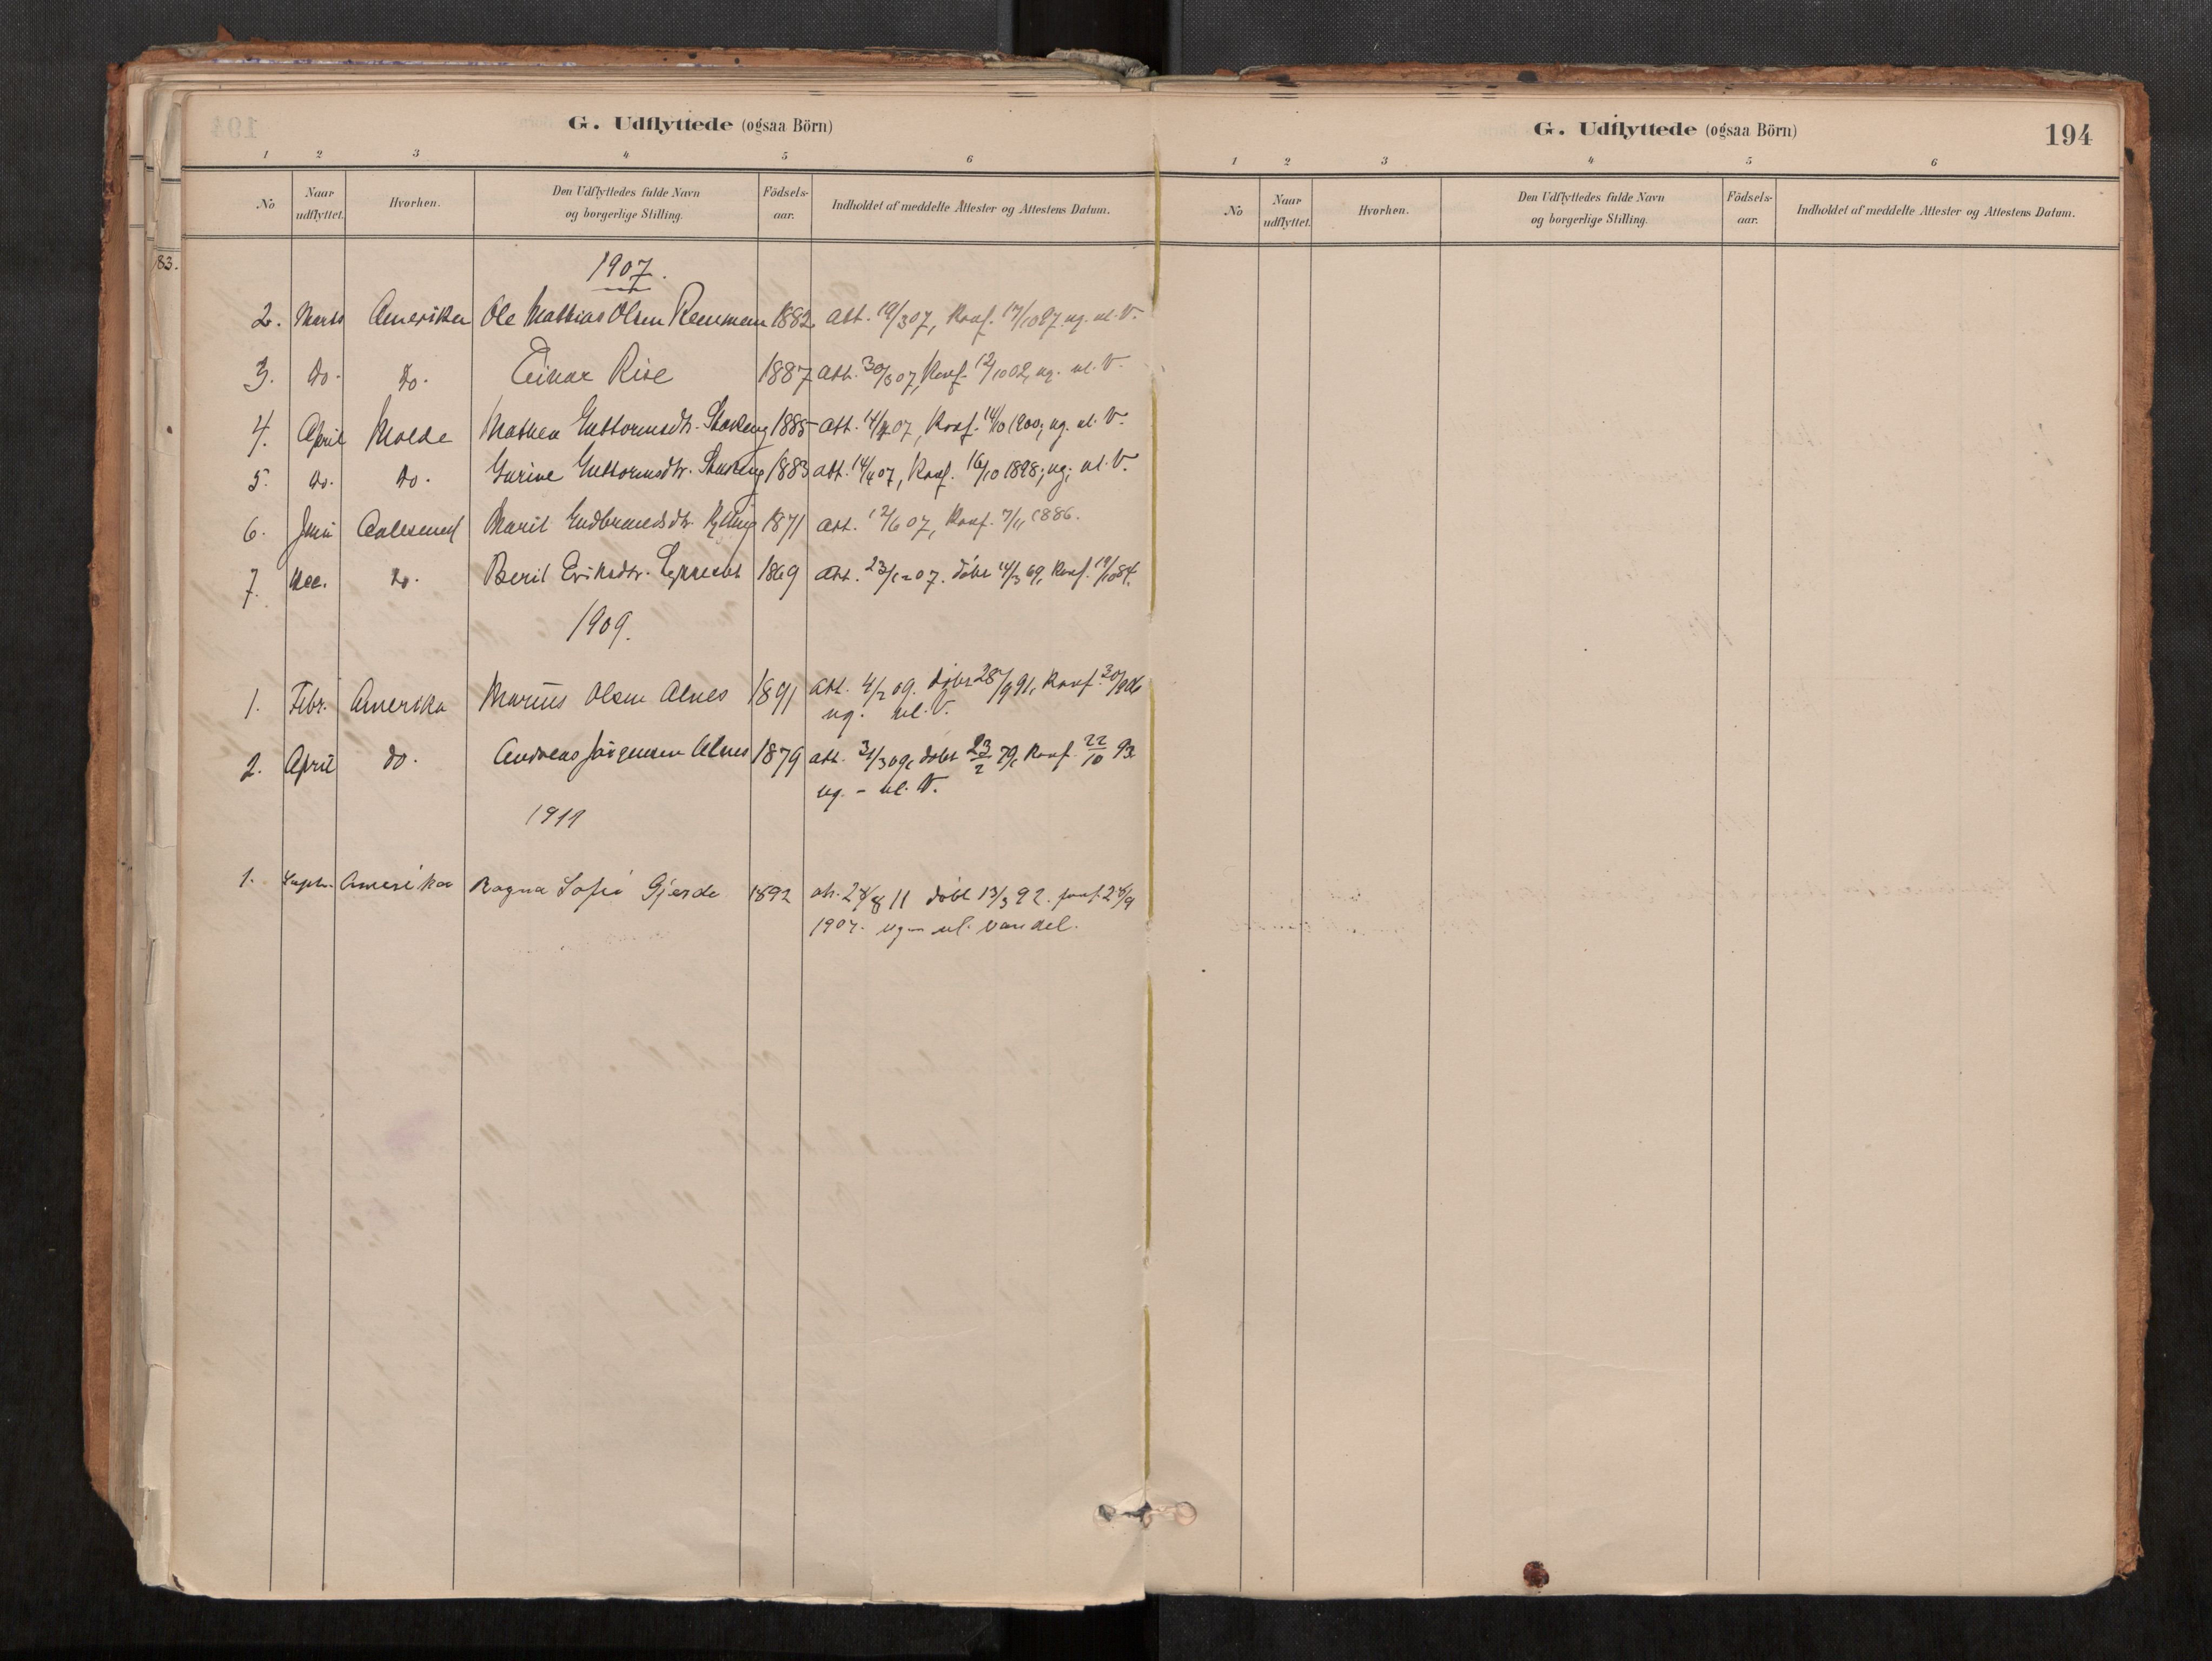 G. Udflyttede (ogsaa Börn)
1 2 3 4 5 6
No Naar udflyttet. Hvorhen. Den Udflyttedes fulde Navn og borgerlige Stilling. Födsels-aar. Indholdet af meddelte Attester og Attestens Datum.
83.
1907.
2. Marts Amerika Ole Mathias Olsen Remmem 1882 att. 19/3 07, Konf. 17/10 97 ug. ul. V.
3. do. do. Einar Rise 1887 att. 30/3 07, Konf. 12/10 02, ug. ul. V.
4. April Molde Mathea Guttormsdtr. 1885 att. 14/4 07, Konf. 14/10 1900; ug. ul. V.
5. do. do. Gurine Guttormsdtr. 1883 att. 14/4 07, Konf. 16/10 1898; ug; ul. V.
6. Juni Aalesund Marit Gudbrandsdtr. Kylling 1871 att. 12/6 07, Konf. 7/11 1886.
7. Dec. do. Beril Eriksdtr. 1869 att. 23/12 07. döbt 14/3 69, Konf. 19/10 84.
1909.
1. Febr. Amerika Marius Olsen Alnes 1891 att. 4/2 09. döbt 28/9 91, Konf. 30/9 06
ug. ul. V.
2. April do. Andreas Jörgensen Alnes 1879 att. 31/3 09, döbt 23/2 79, Konf. 22/10 93
ug. - ul. V.
1911
1. Septr. Amerika Ragna Sofie Gjerde 1892 att. 28/8 11 döbt 13/3 92. konf 28/9
1907. ug - ul. vandel.
G. Udflyttede (ogsaa Börn)
194
1 2 3 4 5 6
No Naar udflyttet. Hvorhen. Den Udflyttedes fulde Navn og borgerlige Stilling. Födsels-aar. Indholdet af meddelte Attester og Attestens Datum.